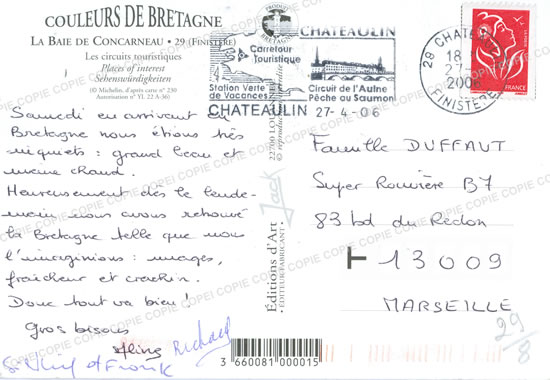 COULEURS DE BRETAGNE
LA BAIE DE CONCARNEAU • 29 (FINISTÈRE)
Les circuits touristiques
Places of interest
Sehenswürdigkeiten
© Michelin, d'après carte n° 230
Autorisation n° VL 22 A-36)
Samedi en arrivant en
Bretagne nous étions très
inquiets : grand beau et
même chaud.
Heureusement dès le lende-
main nous avons retrouvé
la Bretagne telle que nous
l'imaginions : nuages,
fraîcheur et crachin.
Donc tout va bien !
Gros bisous
Aline Richard
et Franck
PRODUIT EN BRETAGNE
CHATEAULIN
Carrefour
Touristique
Station Verte
de Vacances
Circuit de l'Aulne
Pêche au Saumon
CHATEAULIN 27-4-06
29 CHATEAULIN
FINISTERE
FRANCE
22700 LOUANNEC
© reproduction interdite
Jack
Editions d'Art
ÉDITEUR/FABRICANT
Famille DUFFAUT
Super Rouvière B7
83 bd du Redon
13009
MARSEILLE
29/8
3 660081 000015
COPIE COPIE COPIE COPIE COPIE COPIE